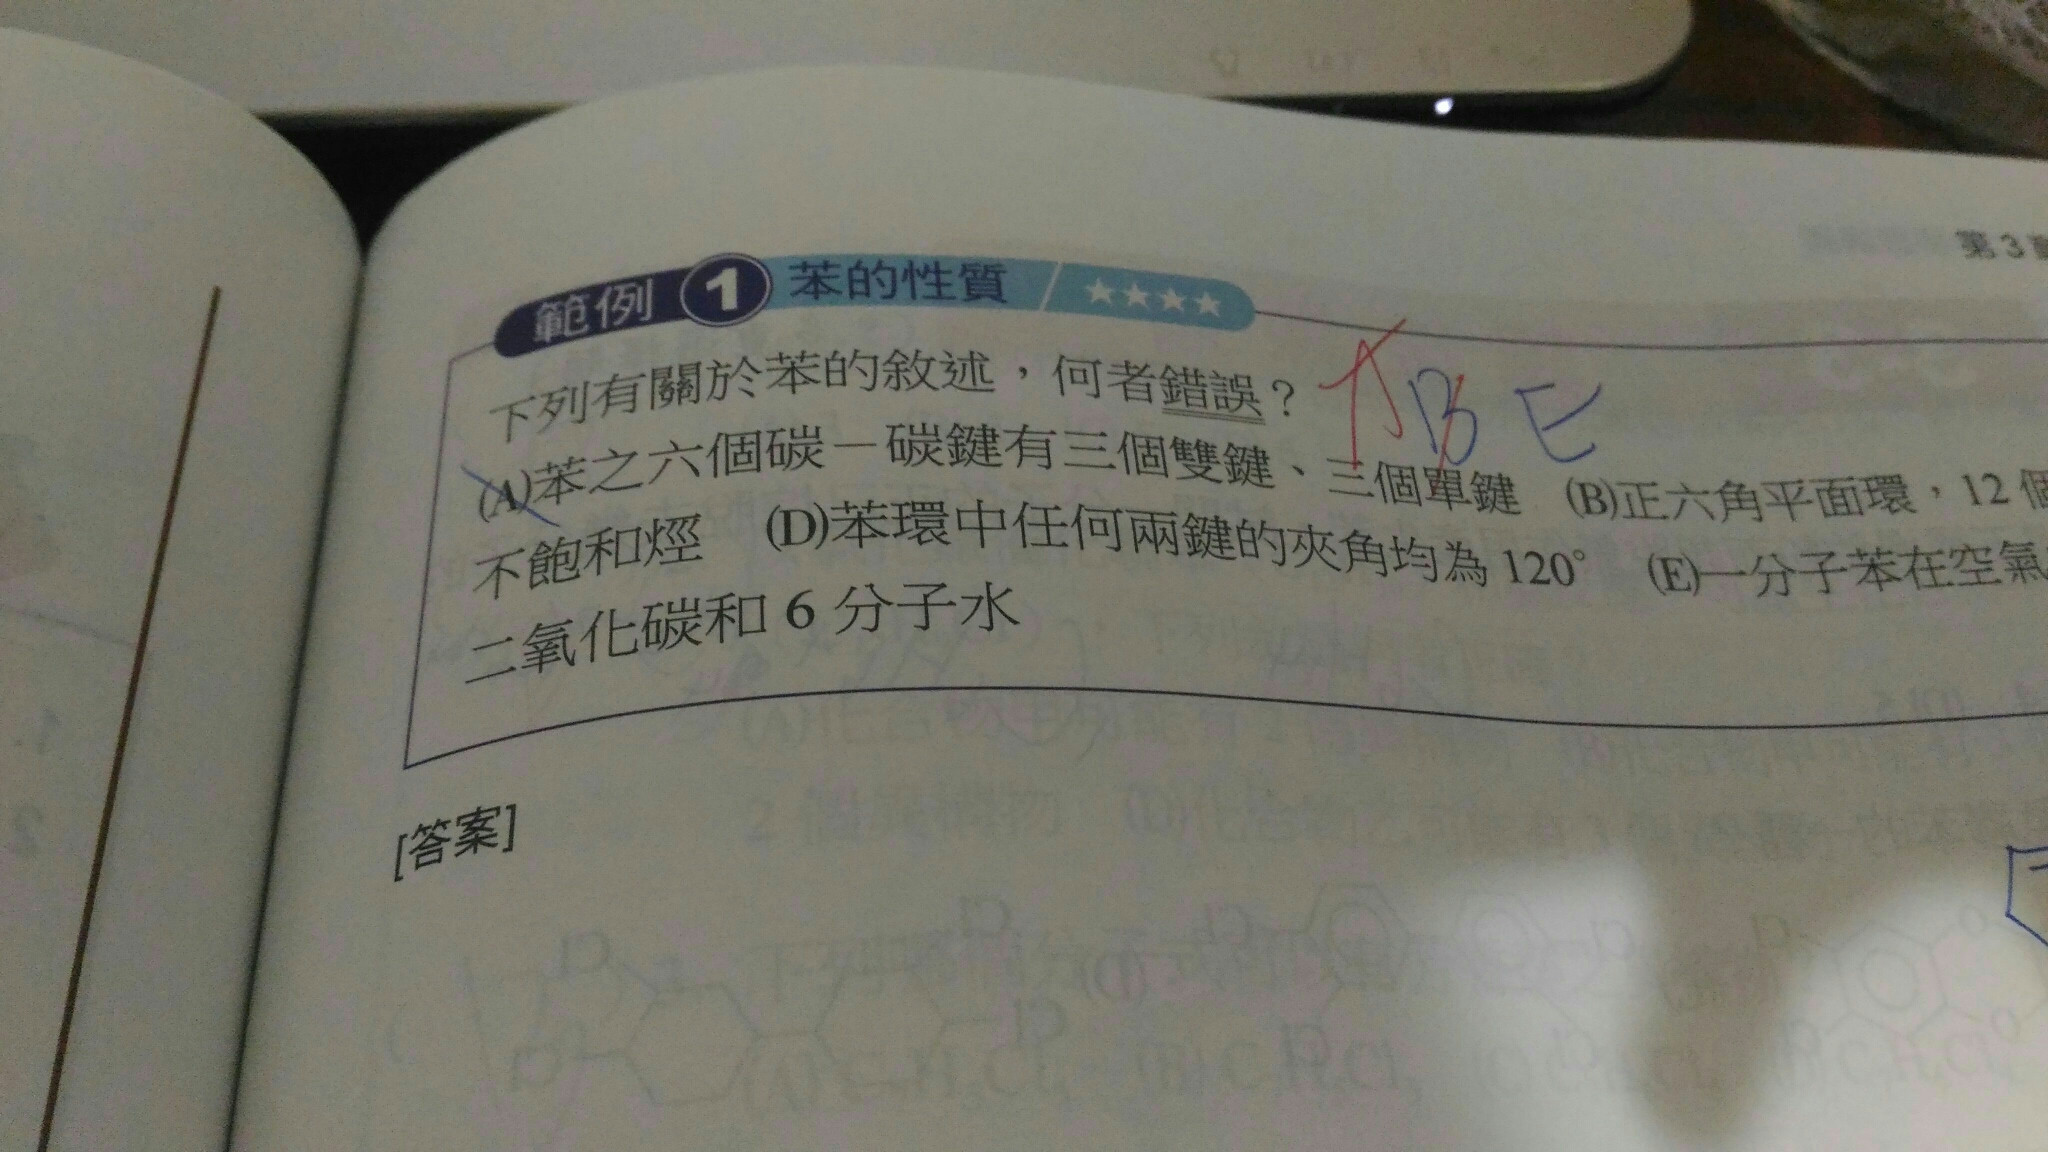 第3
範例 1 苯的性質 ★★★★
下列有關於苯的敘述，何者錯誤？ A B E
(A)苯之六個碳－碳鍵有三個雙鍵、三個單鍵 (B)正六角平面環，12個
不飽和烴 (D)苯環中任何兩鍵的夾角均為120° (E)一分子苯在空氣
二氧化碳和6分子水
[答案]